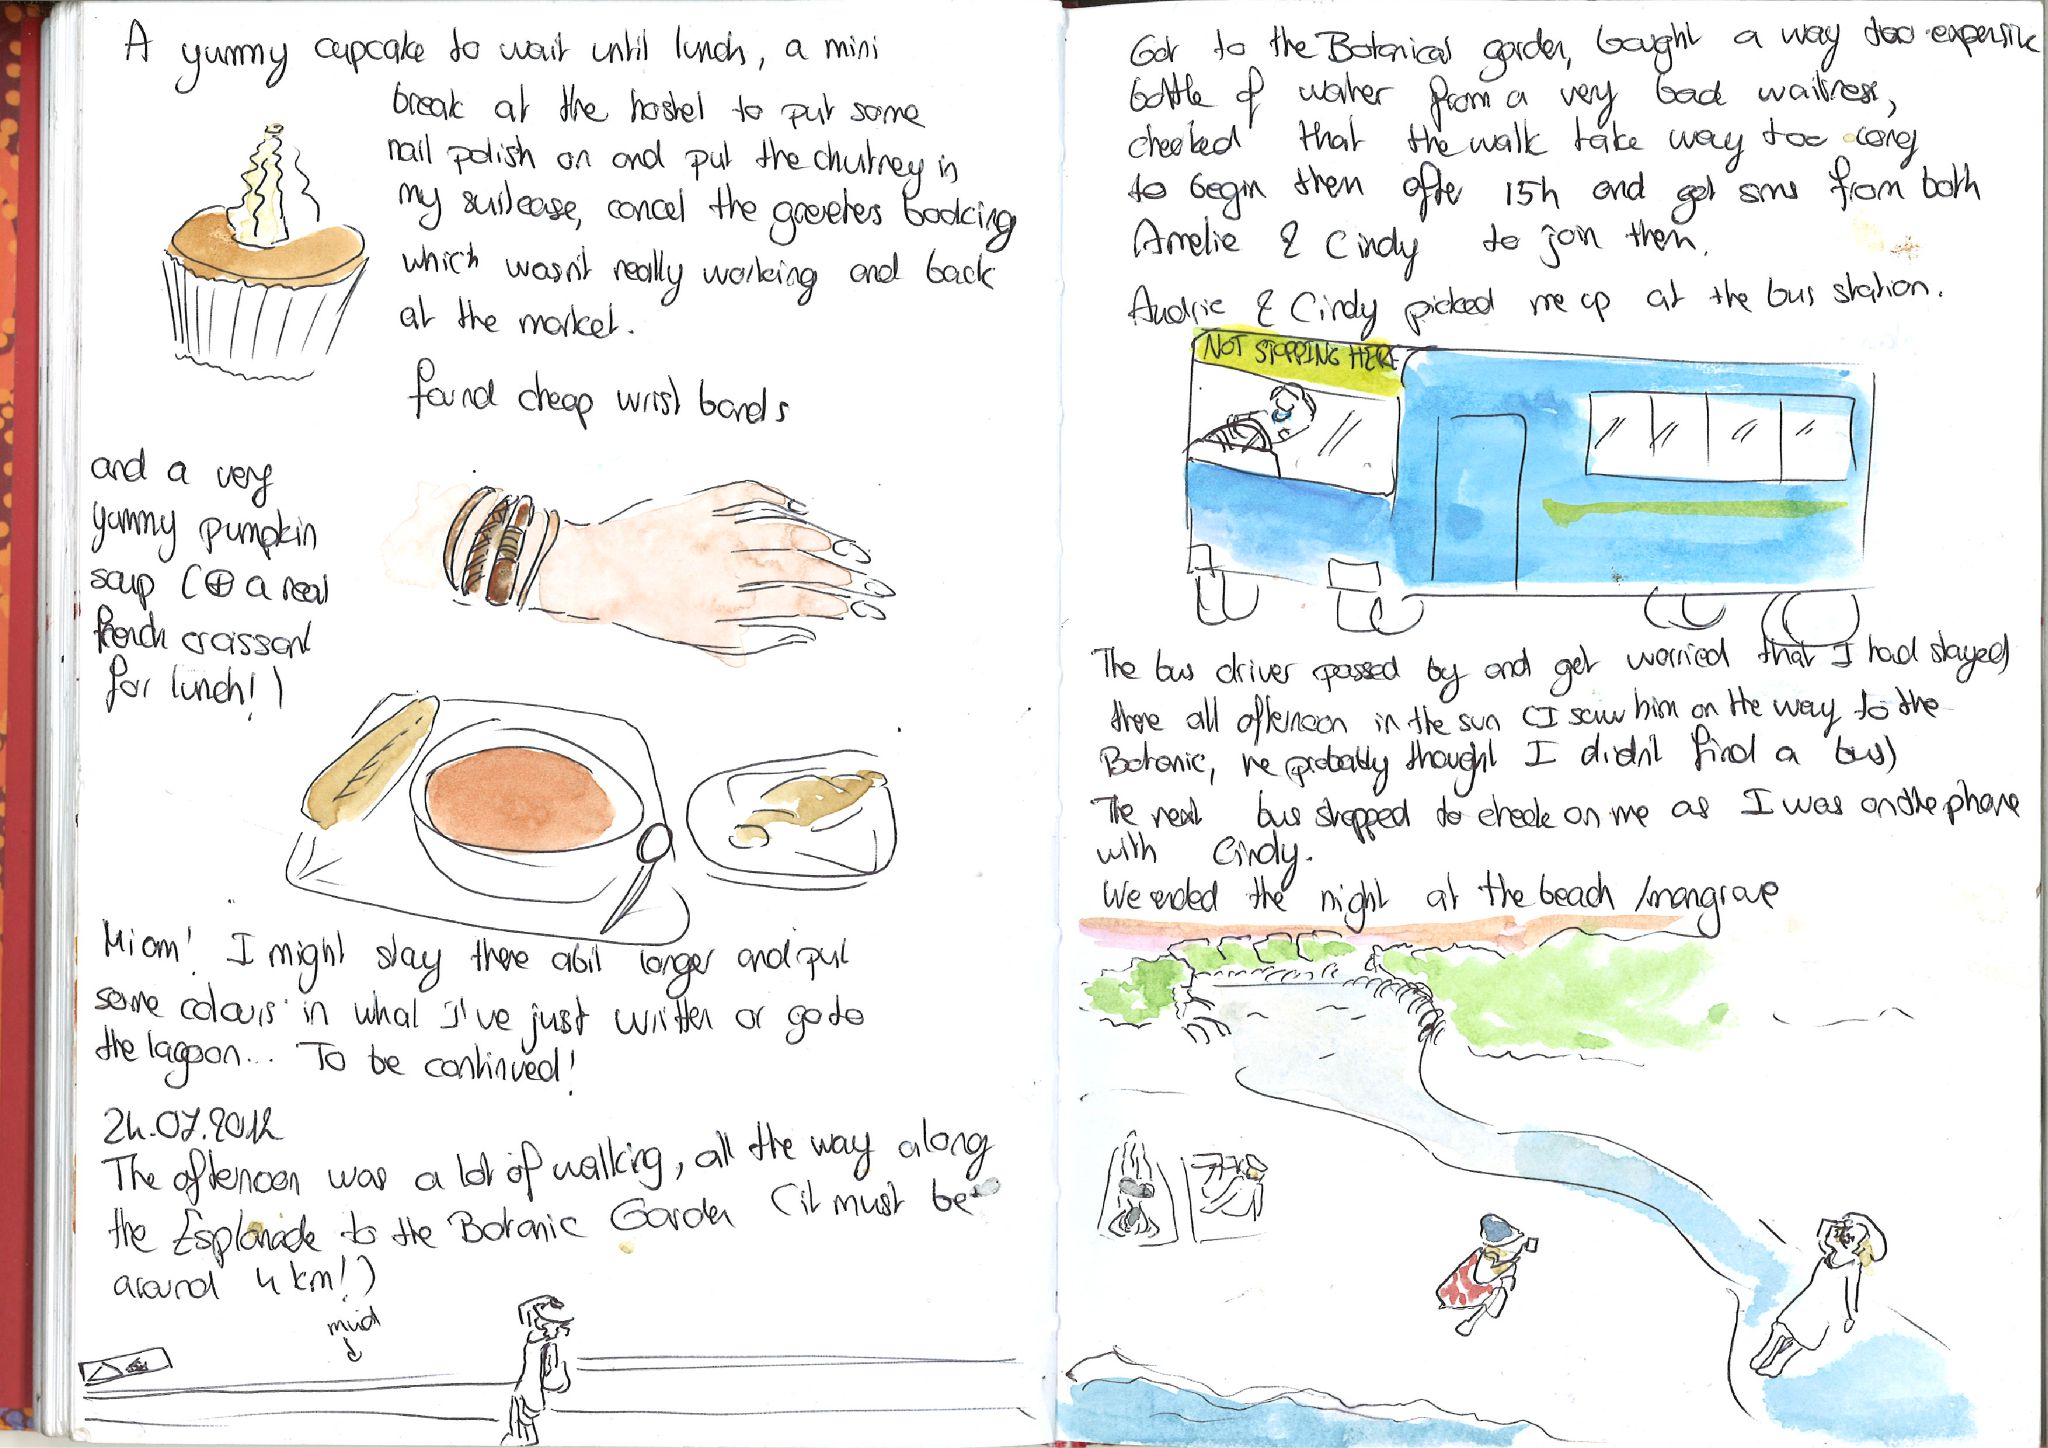 A yummy cupcake to wait until lunch, a mini
break at the hostel to put some
nail polish on and put the chutney in
my suitcase, cancel the greeters booking
which wasn't really working and back
at the market.
found cheap wrist bands
and a very
yummy pumpkin
soup (⊕ a real
french croissant
for lunch!)
Miam! I might stay there a bit longer and put
some colours in what I've just written or go to
the lagoon... To be continued!
24.07.2012
The afternoon was a lot of walking, all the way along
the Esplanade to the Botanic Garden (it must be
around 4 km!)
mud
Got to the Botanical garden, bought a way too expensive
bottle of water from a very bad waitress,
checked that the walk take way too long
to begin then after 15h and got sms from both
Amelie & Cindy to join them.
Audrie & Cindy picked me up at the bus station.
NOT STOPPING HERE
The bus driver passed by and get worried that I had stayed
there all afternoon in the sun (I saw him on the way to the
Botanic, he probably thought I didn't find a bus)
The next bus stopped to check on me as I was on the phone
with Cindy.
We ended the night at the beach / mangrove